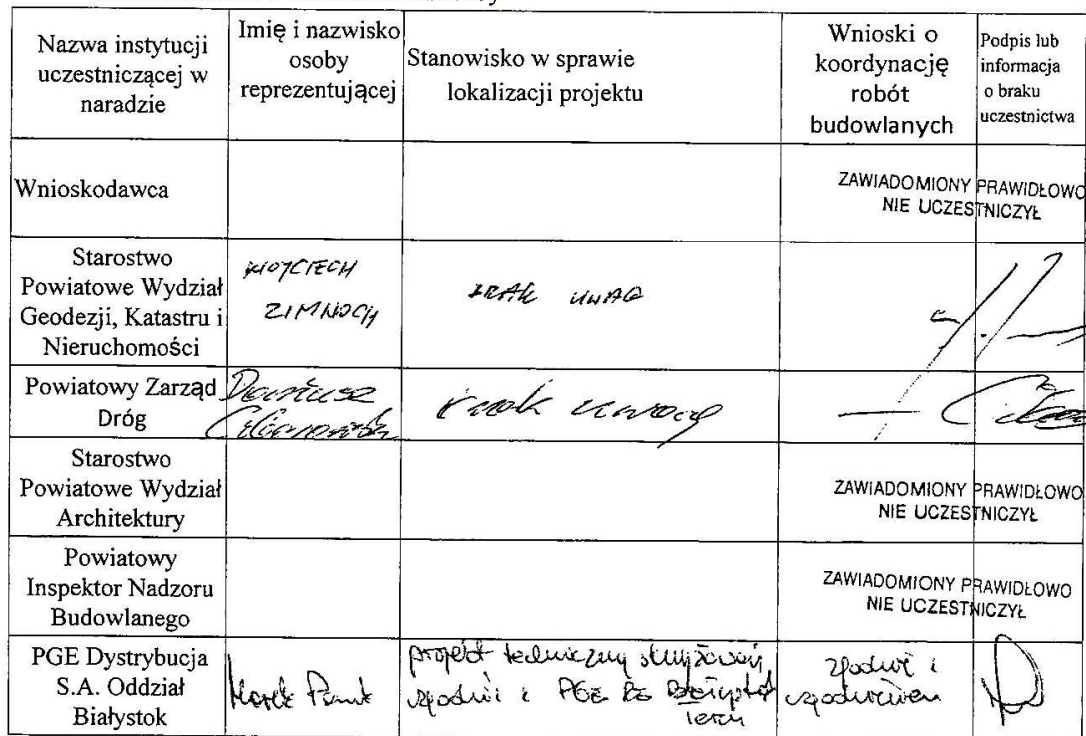 Nazwa instytucji
uczestniczącej w
naradzie
Imię i nazwisko
osoby
reprezentującej
Stanowisko w sprawie
lokalizacji projektu
Wnioski o
koordynację
robót
budowlanych
Podpis lub
informacja
o braku
uczestnictwa
Wnioskodawca
ZAWIADOMIONY PRAWIDŁOWO
NIE UCZESTNICZYŁ
Starostwo
Powiatowe Wydział
Geodezji, Katastru i
Nieruchomości
WOJCIECH
ZIMNOCH
BRAK UWAG
Powiatowy Zarząd
Dróg
Dariusz
brak uwag
Starostwo
Powiatowe Wydział
Architektury
ZAWIADOMIONY PRAWIDŁOWO
NIE UCZESTNICZYŁ
Powiatowy
Inspektor Nadzoru
Budowlanego
ZAWIADOMIONY PRAWIDŁOWO
NIE UCZESTNICZYŁ
PGE Dystrybucja
S.A. Oddział
Białystok
Marek
projekt techniczny skrzyżowań
PGE RE
zgodnie z
uzgodnieniem